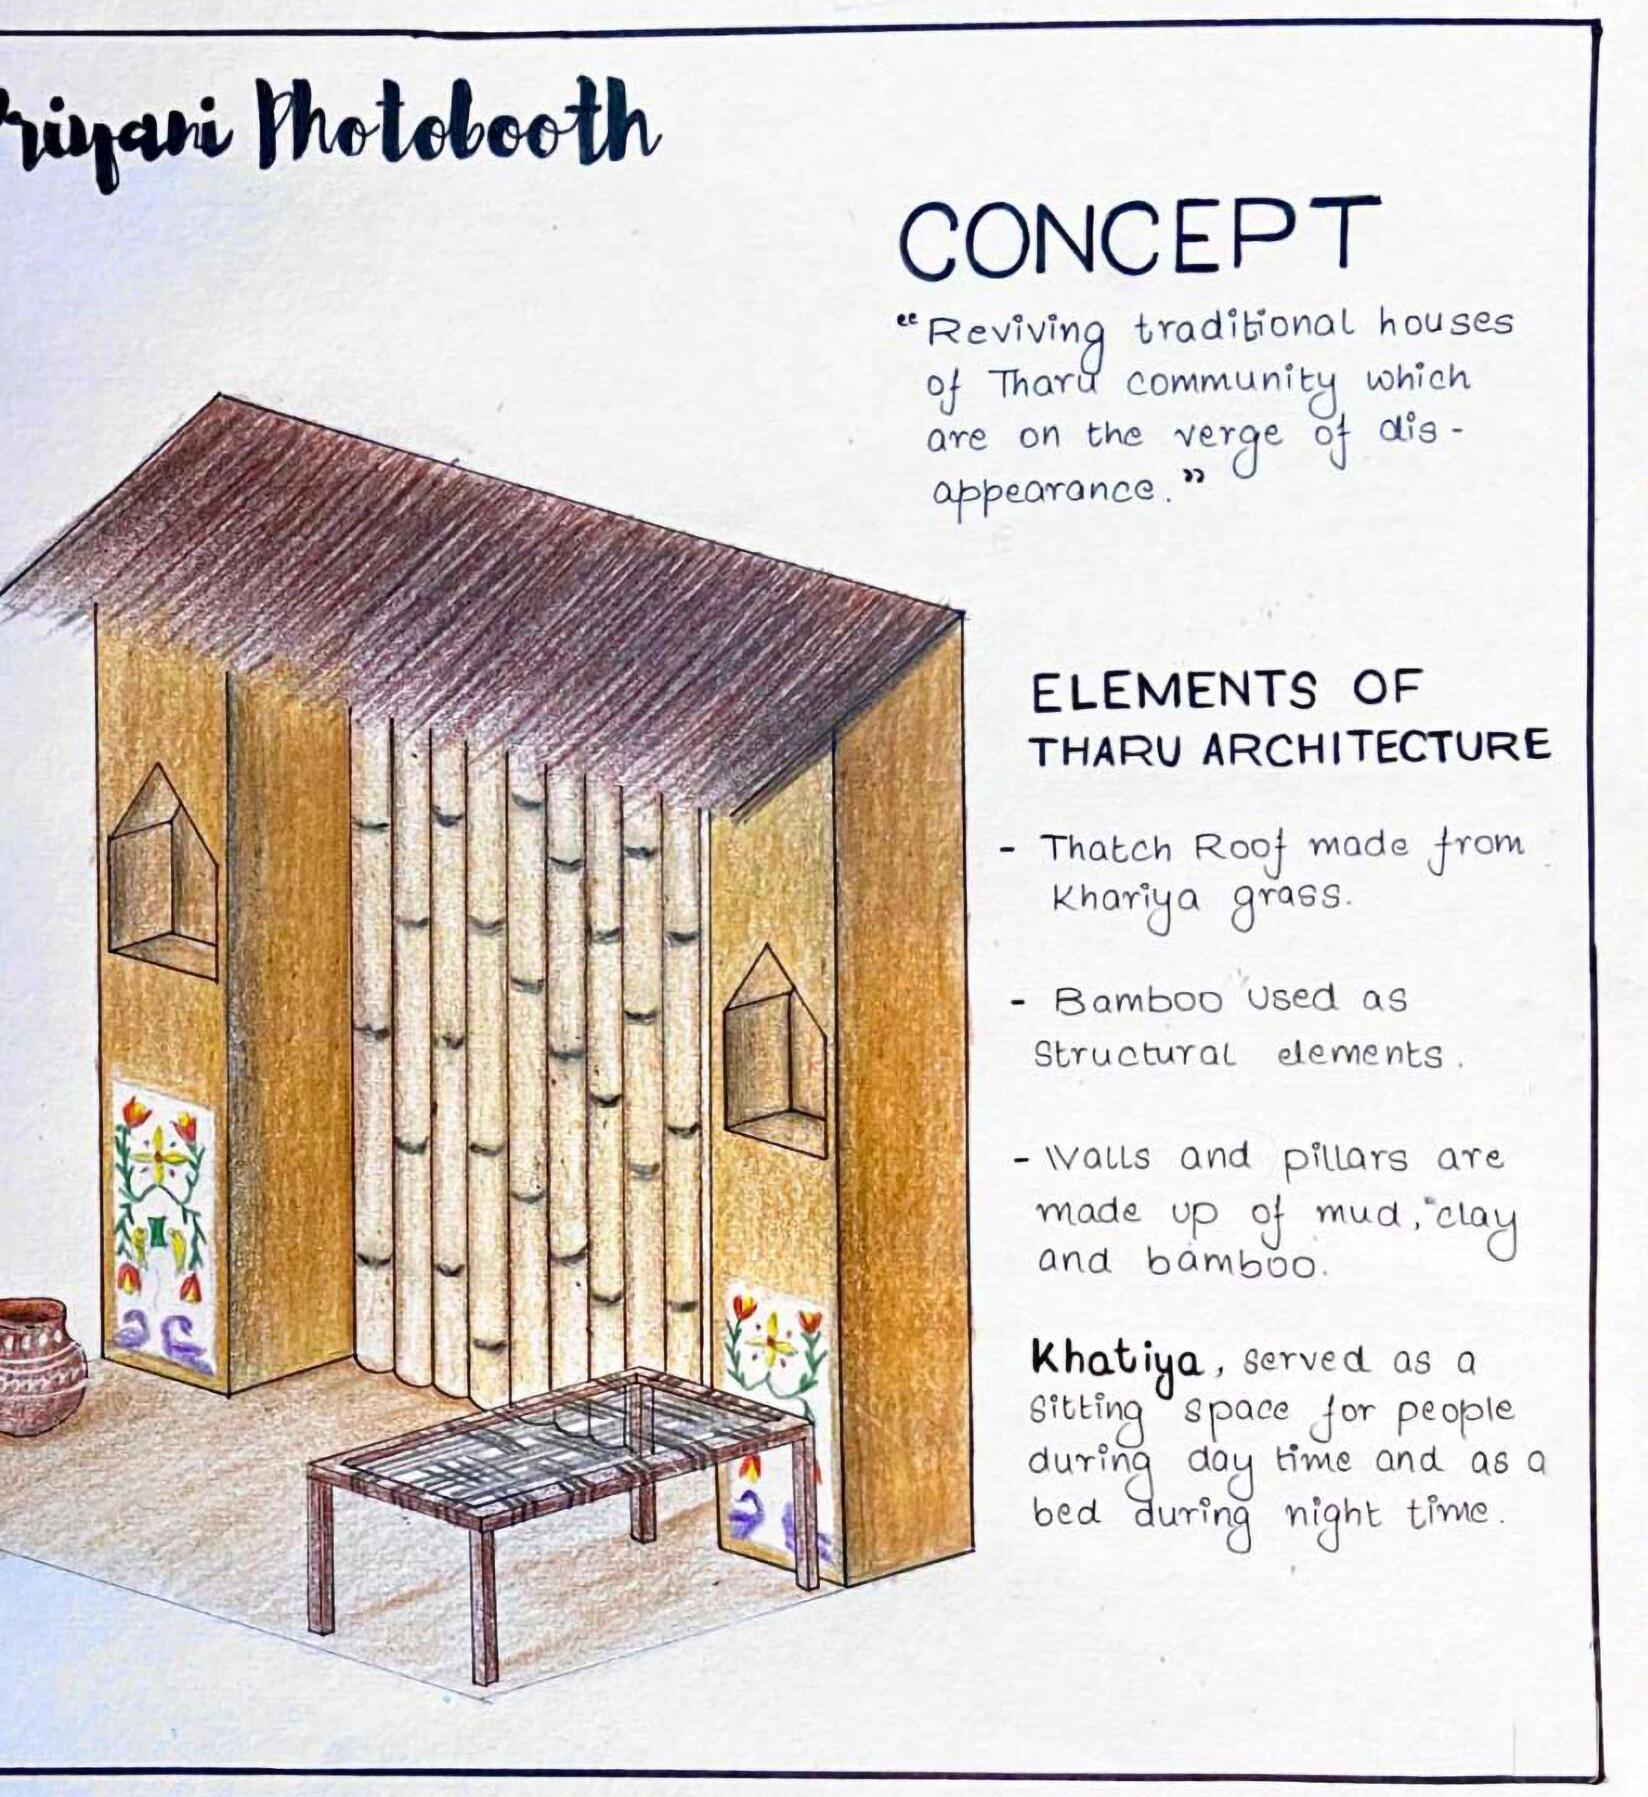 Photobooth
CONCEPT
“Reviving traditional houses
of Tharu community which
are on the verge of dis-
appearance.”
ELEMENTS OF
THARU ARCHITECTURE
- Thatch Roof made from
Khariya grass.
- Bamboo used as
Structural elements.
- Walls and pillars are
made up of mud, clay
and bamboo.
Khatiya, served as a
sitting space for people
during day time and as a
bed during night time.